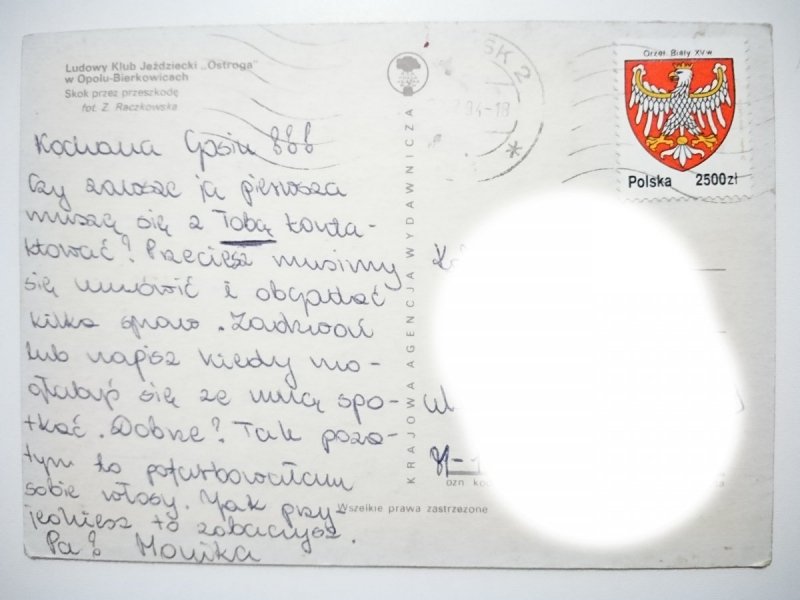 Ludowy Klub Jeździecki „Ostroga"
w Opolu-Bierkowicach
Skok przez przeszkodę
fot. Z. Raczkowska
Kochana Gosiu !!!
Czy zawsze ja pierwsza
muszę się z Tobą konta-
ktować? Przecież musimy
się umówić i obgadać
kilka spraw. Zadzwoń
lub napisz kiedy mo-
głabyś się ze mną spo-
tkać. Dobrze? Tak poza-
tym to pofarbowałam
sobie włosy. Jak przy-
jedziesz to zobaczysz.
Pa! Monika
KRAJOWA AGENCJA WYDAWNICZA
SK 2
94-18
Orzeł Biały XV w
Polska 2500zł
ul
81-1
ozn ko
Wszelkie prawa zastrzeżone